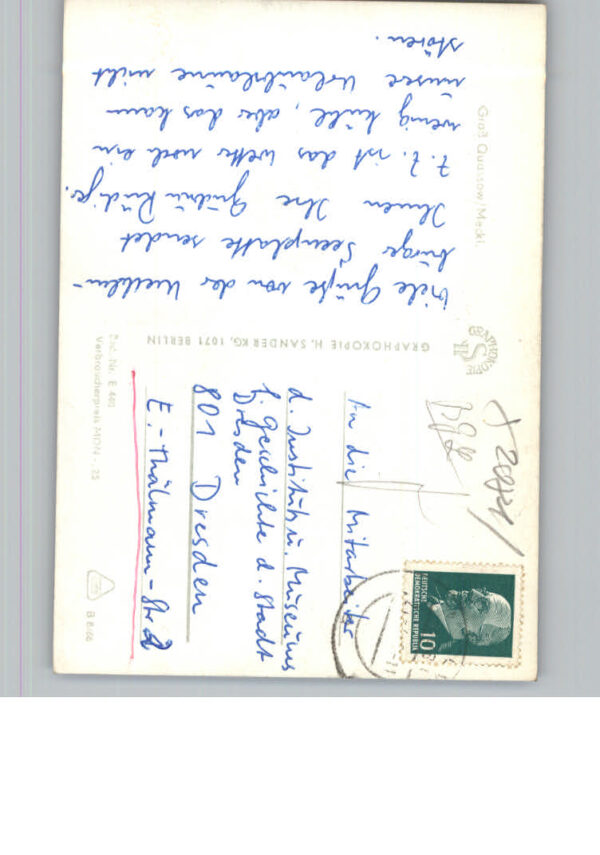 Groß Quassow/Meckl.
Viele Grüße von der Mecklen-
burger Seenplatte sendet
Ihnen Ihre Gudrun Rüdiger.
Z. Z. ist das Wetter noch ein
wenig kühl, aber das kann
unsere Urlaubslaune nicht
stören.
GRAPHOKOPIE
GRAPHOKOPIE H. SANDER KG, 1071 BERLIN
Best.-Nr. E 440
Verbraucherpreis MDN -,25
DEUTSCHE
DEMOKRATISCHE REPUBLIK
10
An die Mitarbeiter
d. Instituts u. Museums
f. Geschichte d. Stadt
Dresden
801 Dresden
E.-Thälmann-Str. 2
B 8/66